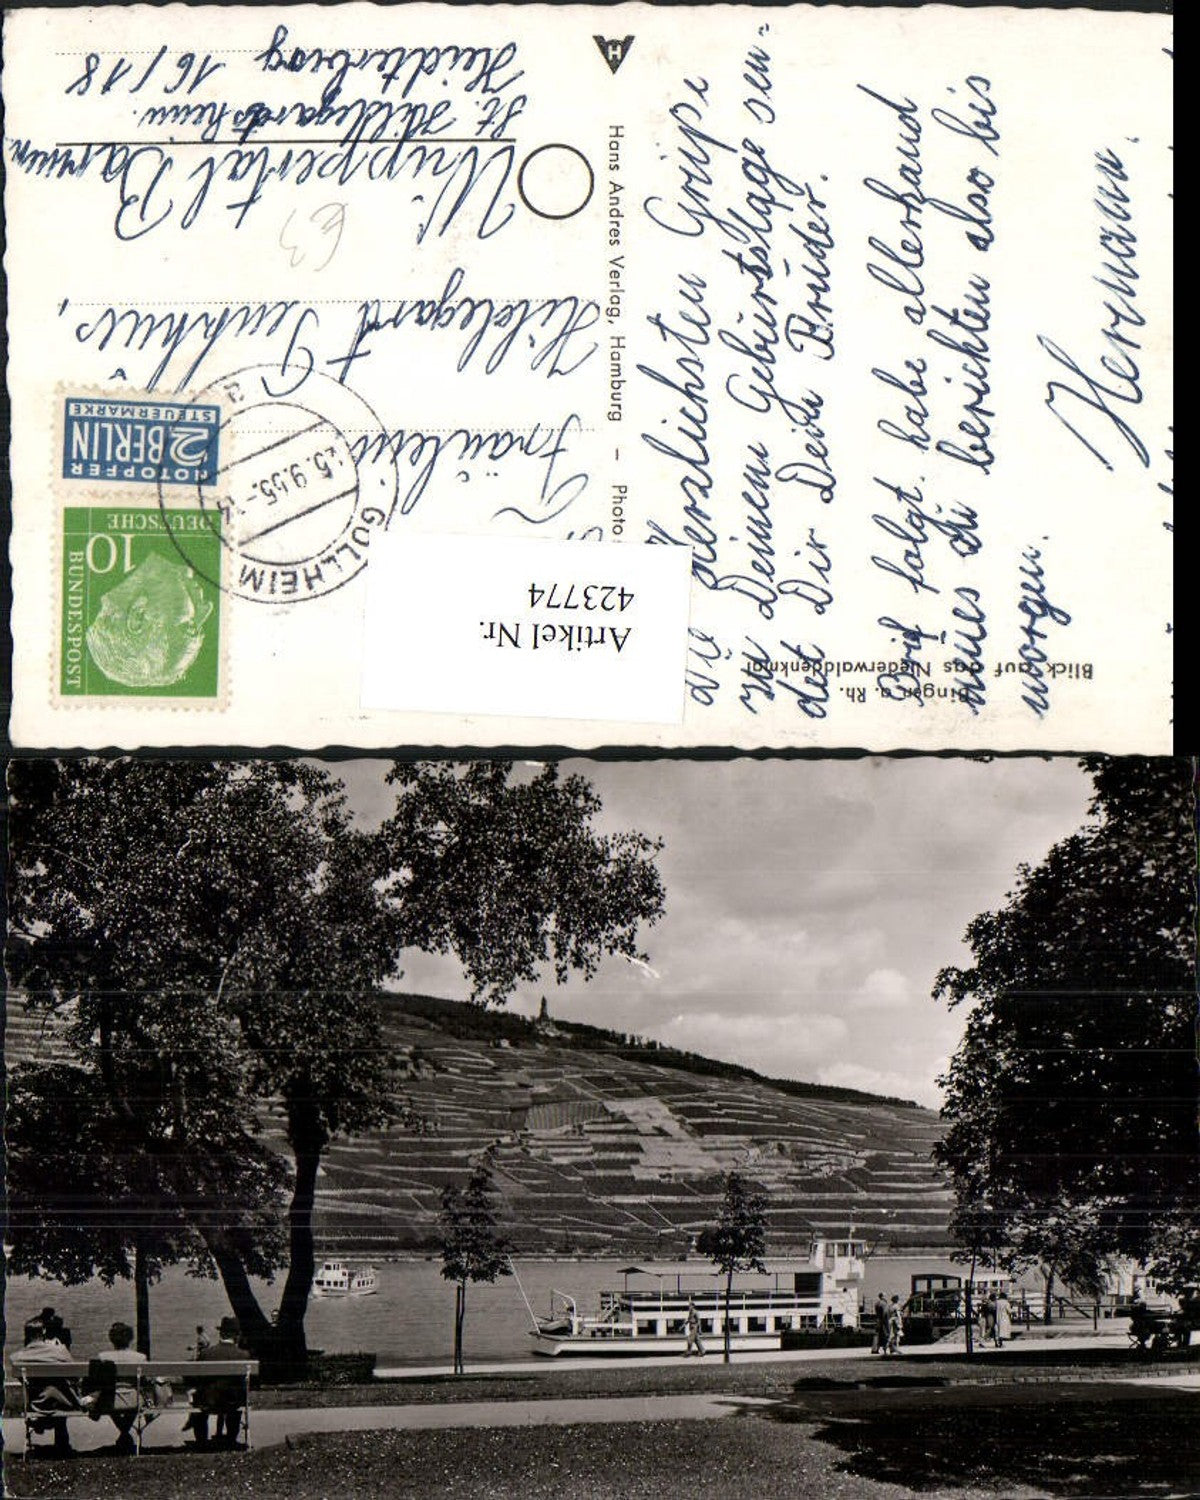 Bingen a. Rh.
Blick auf das Niederwalddenkmal
Die Herzlichsten Grüße
zu Deinem Geburtstage sen=
det Dir Dein Brüder.
Brief folgt. habe allerhand
neues zu berichten also bis
morgen.
Hermann.
Hans Andres Verlag, Hamburg — Photo
H
Artikel Nr.
423774
DEUTSCHE
BUNDESPOST
10
NOTOPFER
2 BERLIN
STEUERMARKE
GÖLLHEIM
25.9.55.-14
a
Fräulein
Hildegard
Wuppertal Barmen
St. Hildegardsheim.
Heidterberg 16/18
€3